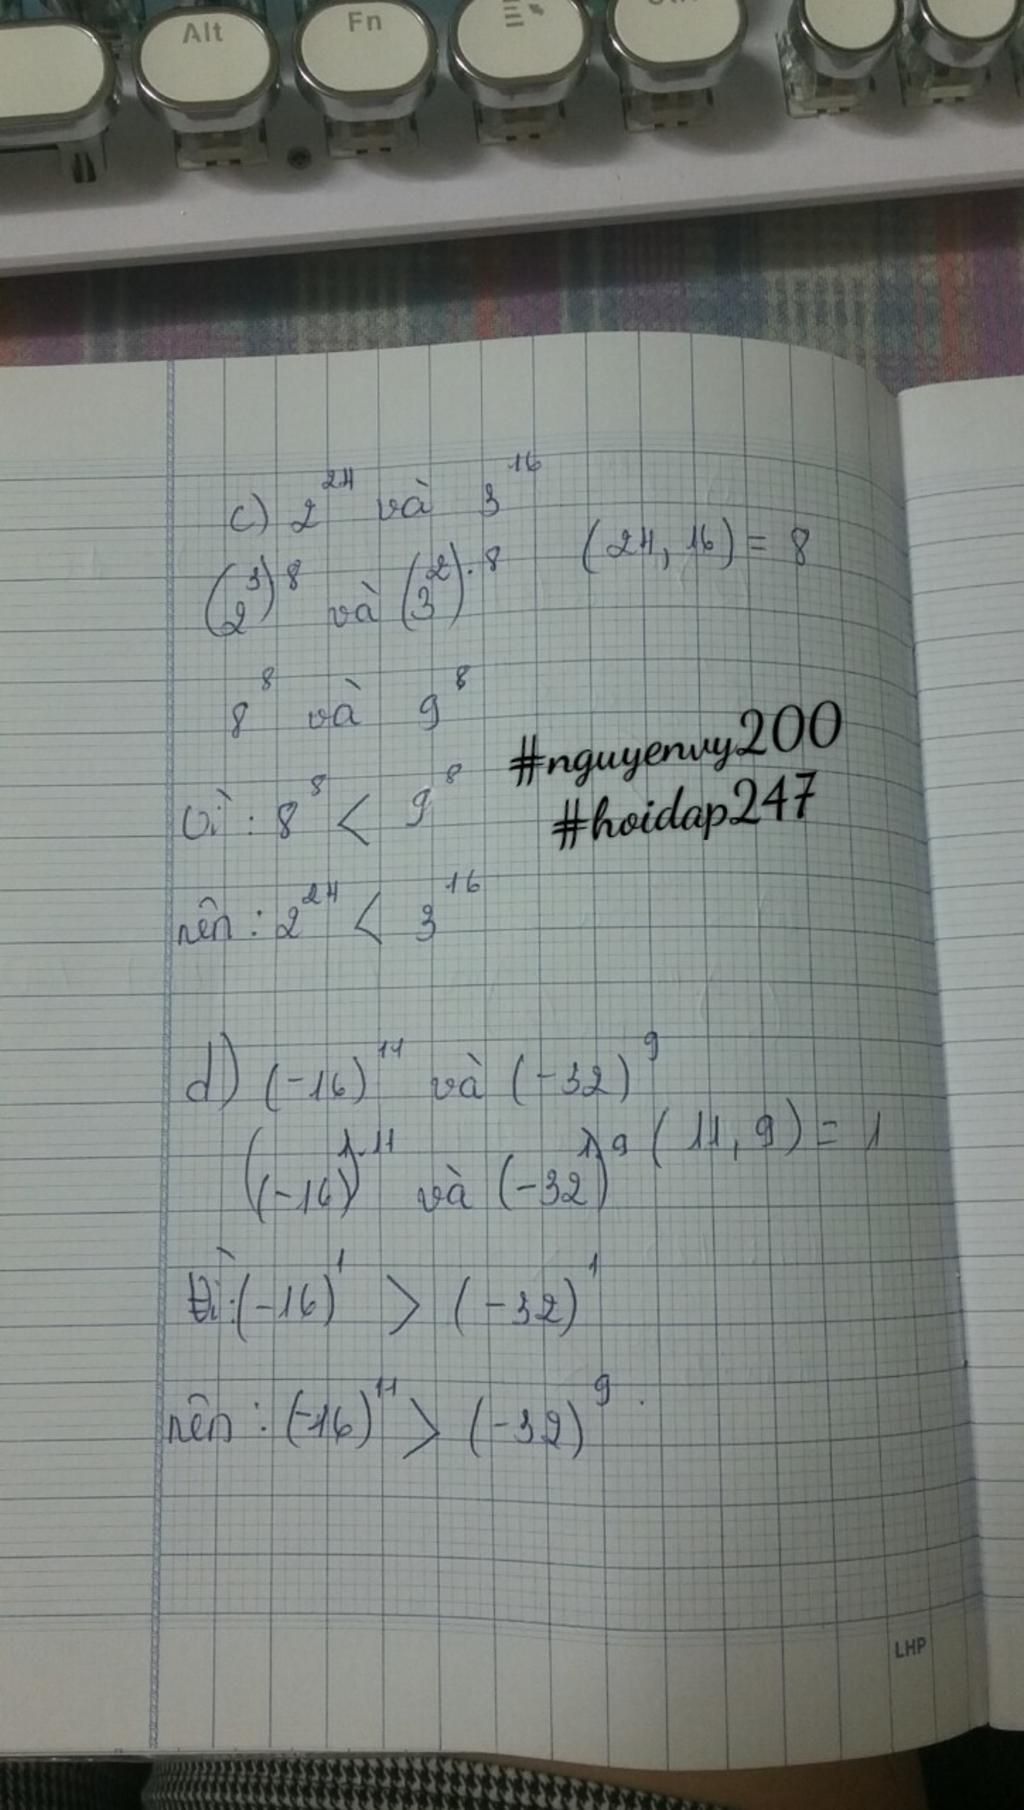 Alt Fn
c) 2^24 và 3^16
(2^3)^8 và (3^2)^.8 (24, 16) = 8
8^8 và 9^8
#nguyenvy200
vì : 8^8 < 9^8
#hoidap247
nên : 2^24 < 3^16
d) (-16)^11 và (-32)^9
((-16)^1.11 và (-32)^1)^9 (11, 9) = 1
Vì : (-16)^1 > (-32)^1
nên : (-16)^11 > (-32)^9.
LHP